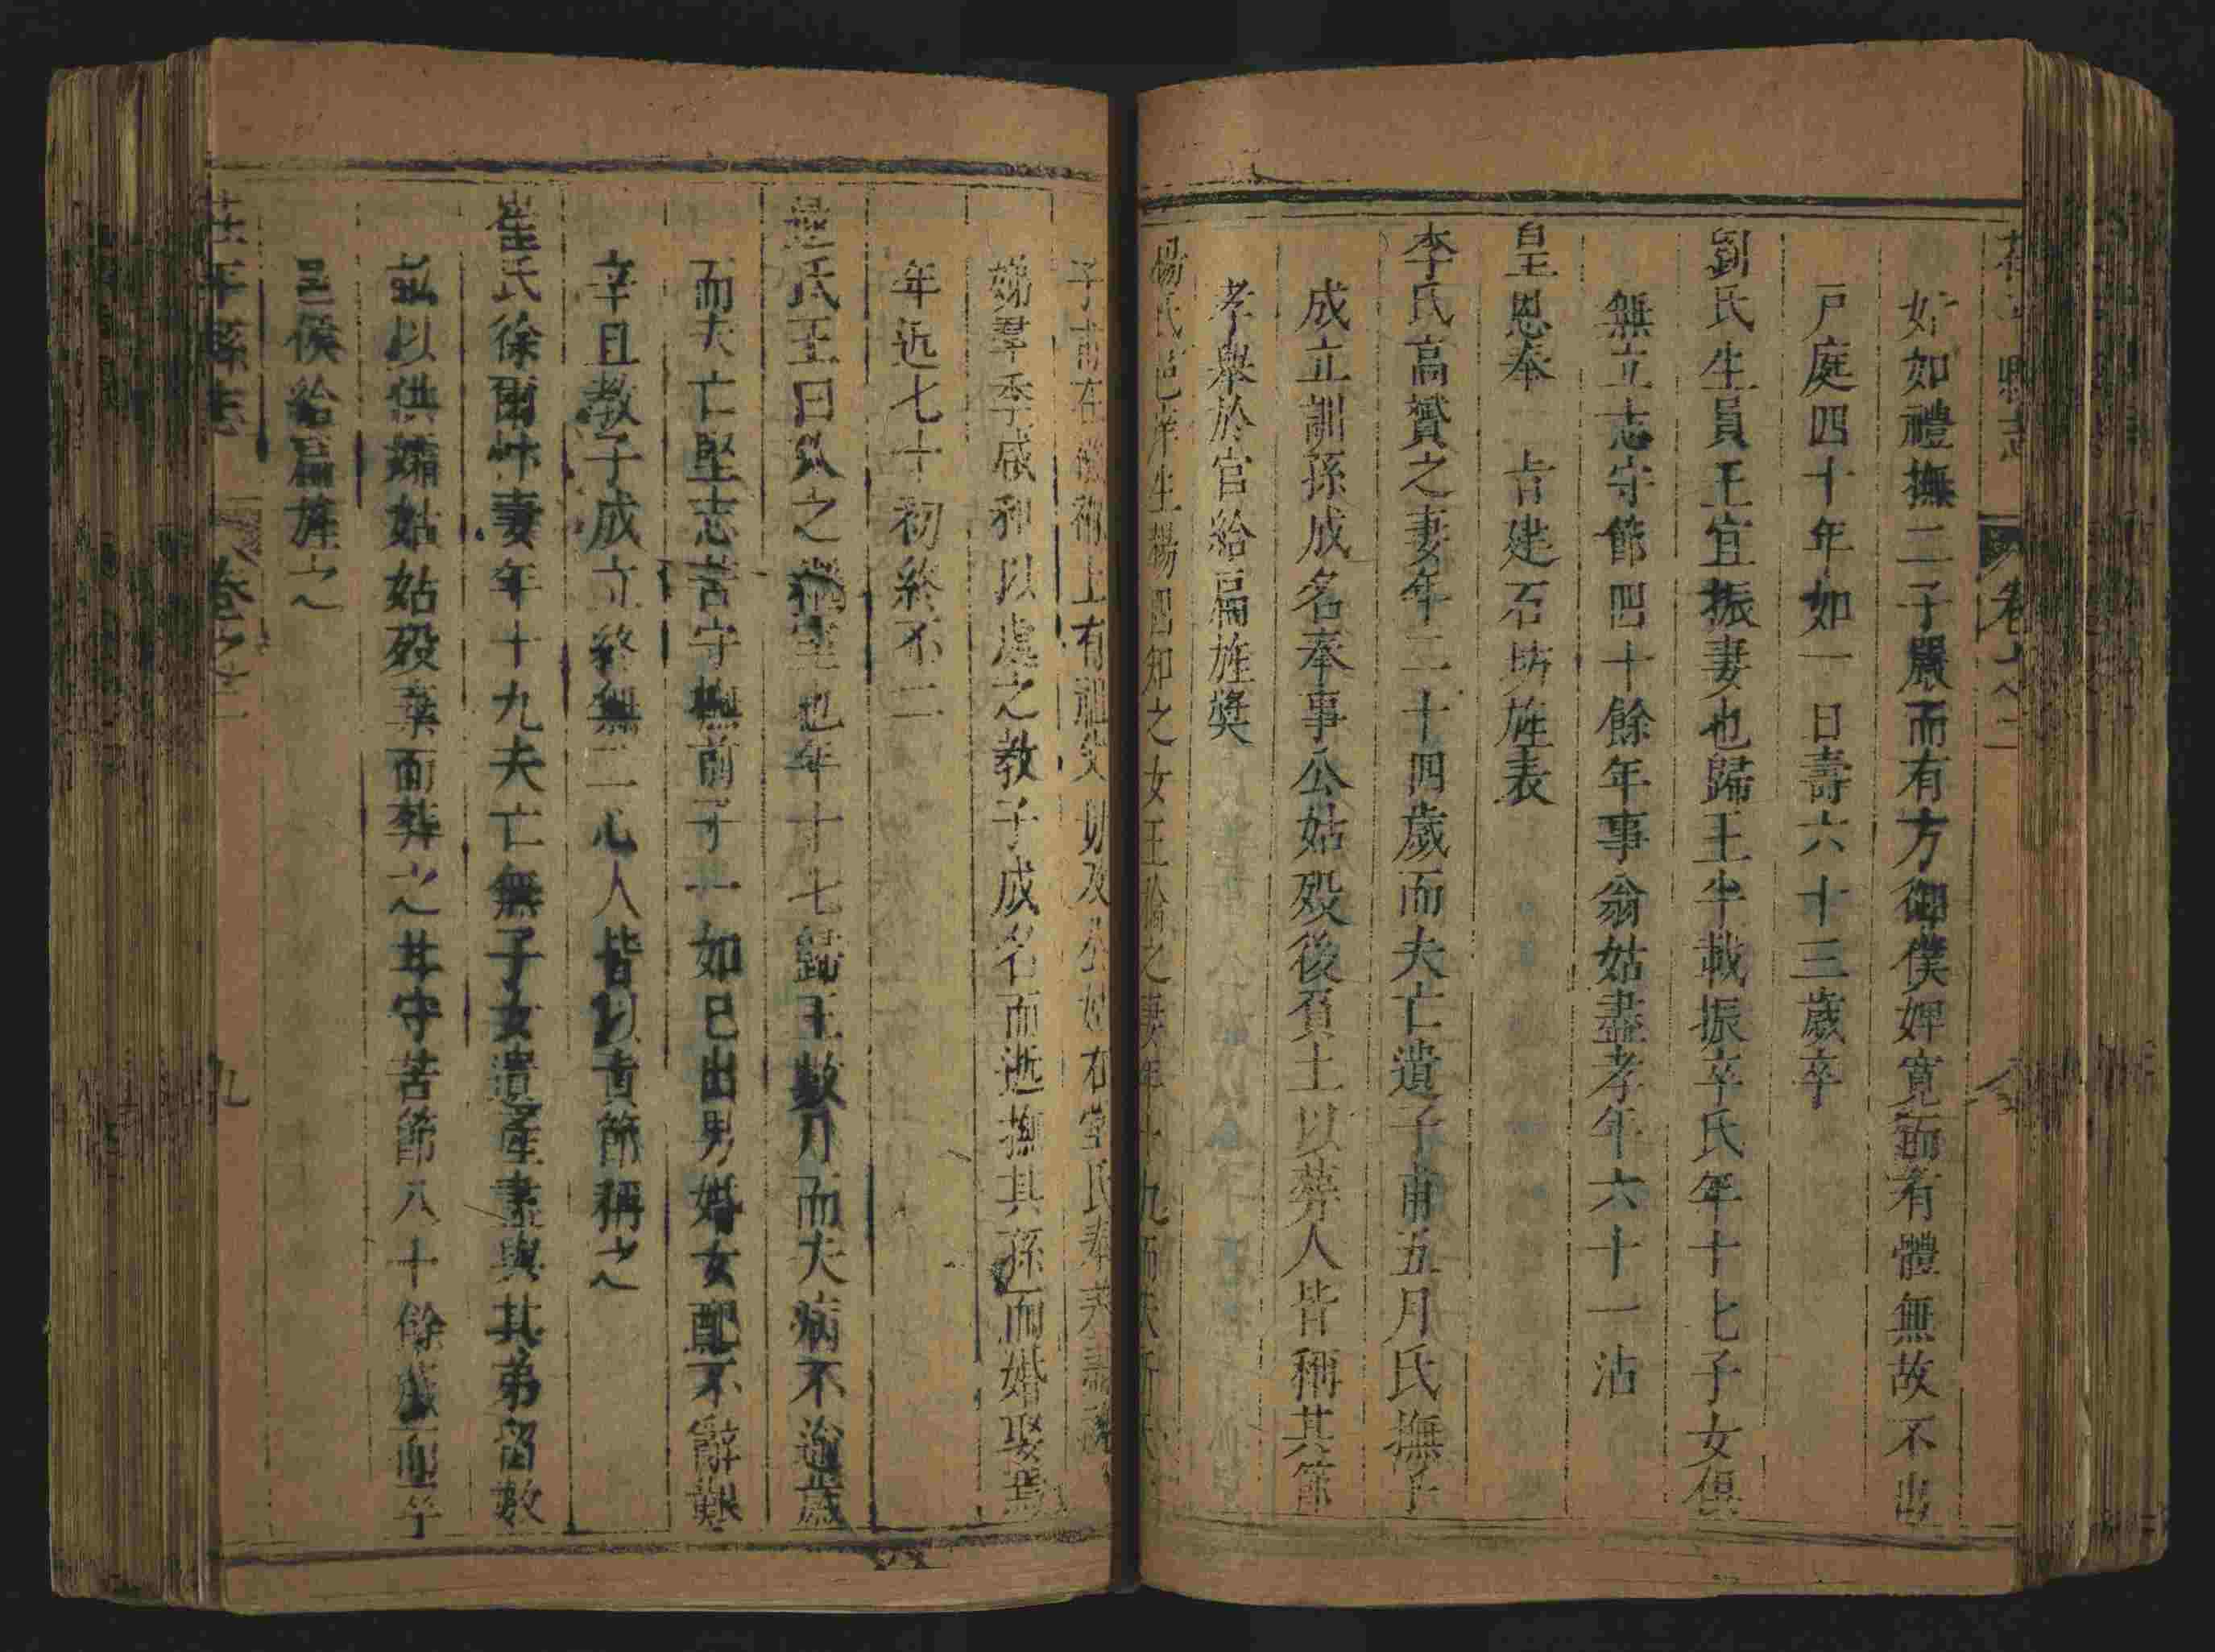 茌平縣志 卷之二
如禮撫二子嚴而有方御僕婢寛而有體無故不出
戸庭四十年如一日壽六十三歲卒
劉氏生員王宜振妻也歸王半載振卒氏年十七子女俱
無立志守節四十餘年事翁姑盡孝年六十一沾
皇恩奉 旨建石坊旌表
李氏高贇之妻年二十四歲而夫亡遺子甫五月氏撫子
成立訓孫成名奉事公姑殁後負土以葬人皆稱其節
孝舉於官給扁旌奬
楊氏邑庠生楊四知之女王 之妻年十九而夫 氏
子甫在襁褓上有祖父母及公姑在堂氏奉
娣羣季咸和以處之教子成名而逝撫其孫而婚娶焉
年近七十初終不二
氏王曰 之繼室也年十七歸王數月而夫病不逾歲
而夫亡堅志苦守撫前子一如已出男婚女配不辭艱
辛且教子成立終無二心人皆以貞節稱之
崔氏徐爾 妻年十九夫亡無子女遺產盡與其弟留數
畝以供孀姑姑殁棄而葬之其守苦節八十餘歲 乎
邑侯給扁旌之
茌平縣志 卷之二 九